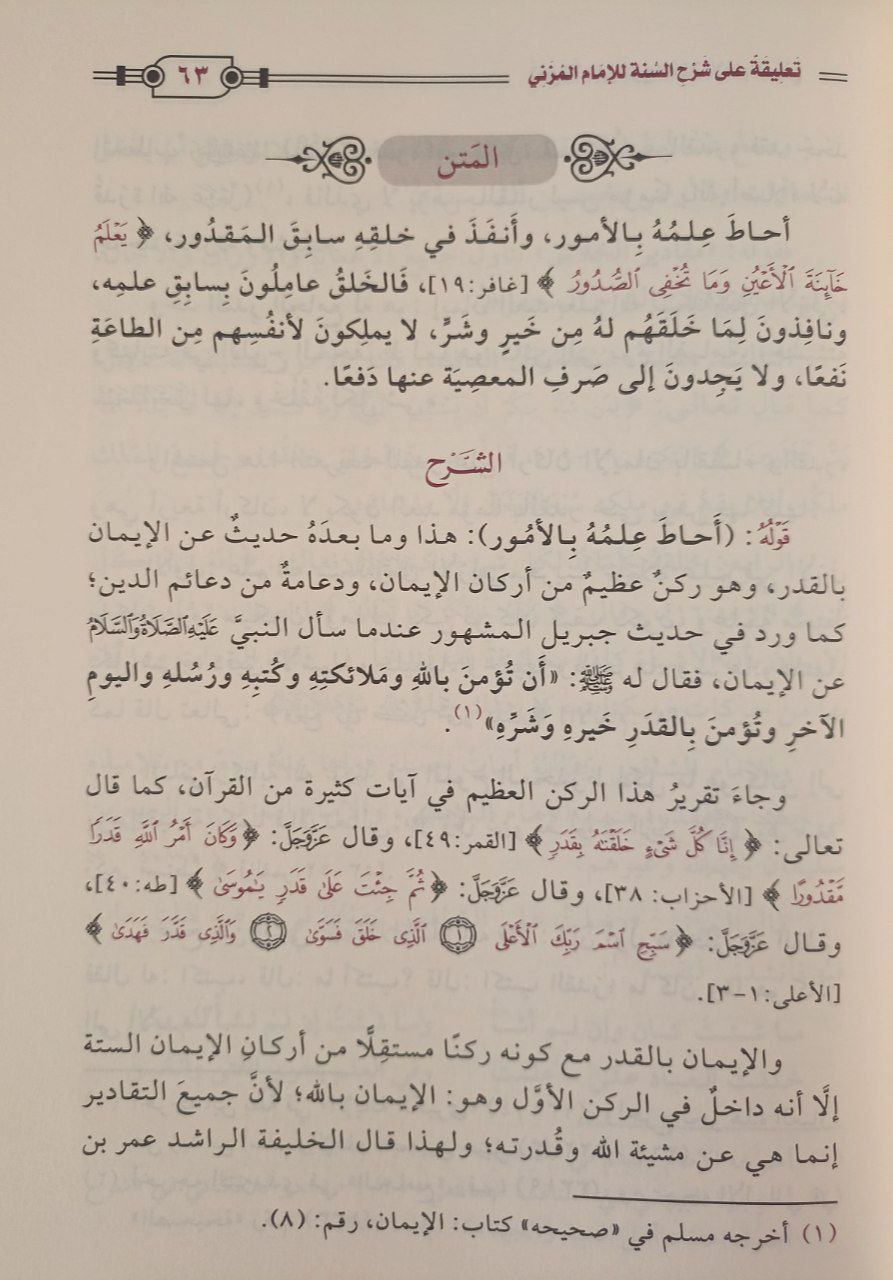 تعليقة على شرح السنة للإمام المزني
٦٣
المتن
أحاطَ عِلمُهُ بِالأمور، وأَنفَذَ في خلقِهِ سابِقَ المَقدُور، ﴿ يَعْلَمُ
خَآئِنَةَ ٱلْأَعْيُنِ وَمَا تُخْفِى ٱلصُّدُورُ ﴾ [غافر:١٩]، فَالخَلقُ عامِلُونَ بِسابِقِ علمِه،
ونافِذونَ لِمَا خَلَقَهُم لهُ مِن خَيرٍ وشَرٍّ، لا يملِكونَ لأنفُسِهم مِن الطاعَةِ
نَفعًا، ولا يَجِدونَ إلى صَرفِ المعصِيَة عنها دَفعًا.
الشَّرْح
قَوْلُهُ: (أَحاطَ عِلمُهُ بِالأمُور): هذا وما بعدَهُ حديثٌ عن الإيمان
بالقدر، وهو ركنٌ عظيمٌ من أركان الإيمان، ودعامةٌ من دعائم الدين؛
كما ورد في حديث جبريل المشهور عندما سأل النبيَّ عَلَيْهِ ٱلصَّلَاةُ وَٱلسَّلَامُ
عن الإيمان، فقال له ﷺ: «أَن تُؤمنَ باللهِ ومَلائكتِهِ وكُتبِهِ ورُسُلهِ واليومِ
الآخرِ وتُؤمنَ بِالقدَرِ خَيرهِ وَشَرِّهِ»(١).
وجاءَ تقريرُ هذا الركن العظيم في آيات كثيرة من القرآن، كما قال
تعالى: ﴿ إِنَّا كُلَّ شَىْءٍ خَلَقْنَٰهُ بِقَدَرٍ ﴾ [القمر:٤٩]، وقال عَزَّوَجَلَّ: ﴿ وَكَانَ أَمْرُ ٱللَّهِ قَدَرًا
مَّقْدُورًا ﴾ [الأحزاب: ٣٨]، وقال عَزَّوَجَلَّ: ﴿ ثُمَّ جِئْتَ عَلَىٰ قَدَرٍ يَٰمُوسَىٰ ﴾ [طه:٤٠]،
وقال عَزَّوَجَلَّ: ﴿ سَبِّحِ ٱسْمَ رَبِّكَ ٱلْأَعْلَى ١ ٱلَّذِى خَلَقَ فَسَوَّىٰ ٢ وَٱلَّذِى قَدَّرَ فَهَدَىٰ ﴾
[الأعلى:١-٣].
والإيمان بالقدر مع كونه ركنًا مستقِلًّا من أركانِ الإيمان الستة
إلَّا أنه داخلٌ في الركن الأوَّل وهو: الإيمان بالله؛ لأنَّ جميعَ التقادير
إنما هي عن مشيئة الله وقُدرته؛ ولهذا قال الخليفة الراشد عمر بن
(١) أخرجه مسلم في «صحيحه» كتاب: الإيمان، رقم: (٨).